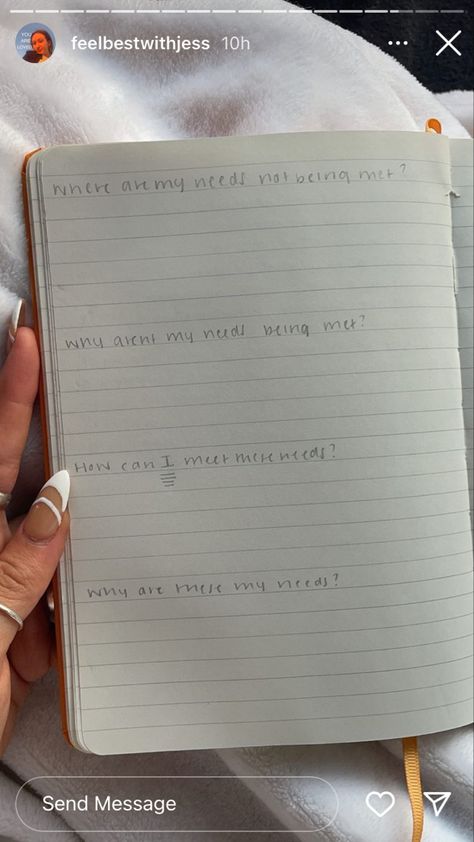 YOU
ARE
LOVED
feelbestwithjess 10h
where are my needs not being met?
why arent my needs being met?
How can I meet these needs?
why are these my needs?
Send Message